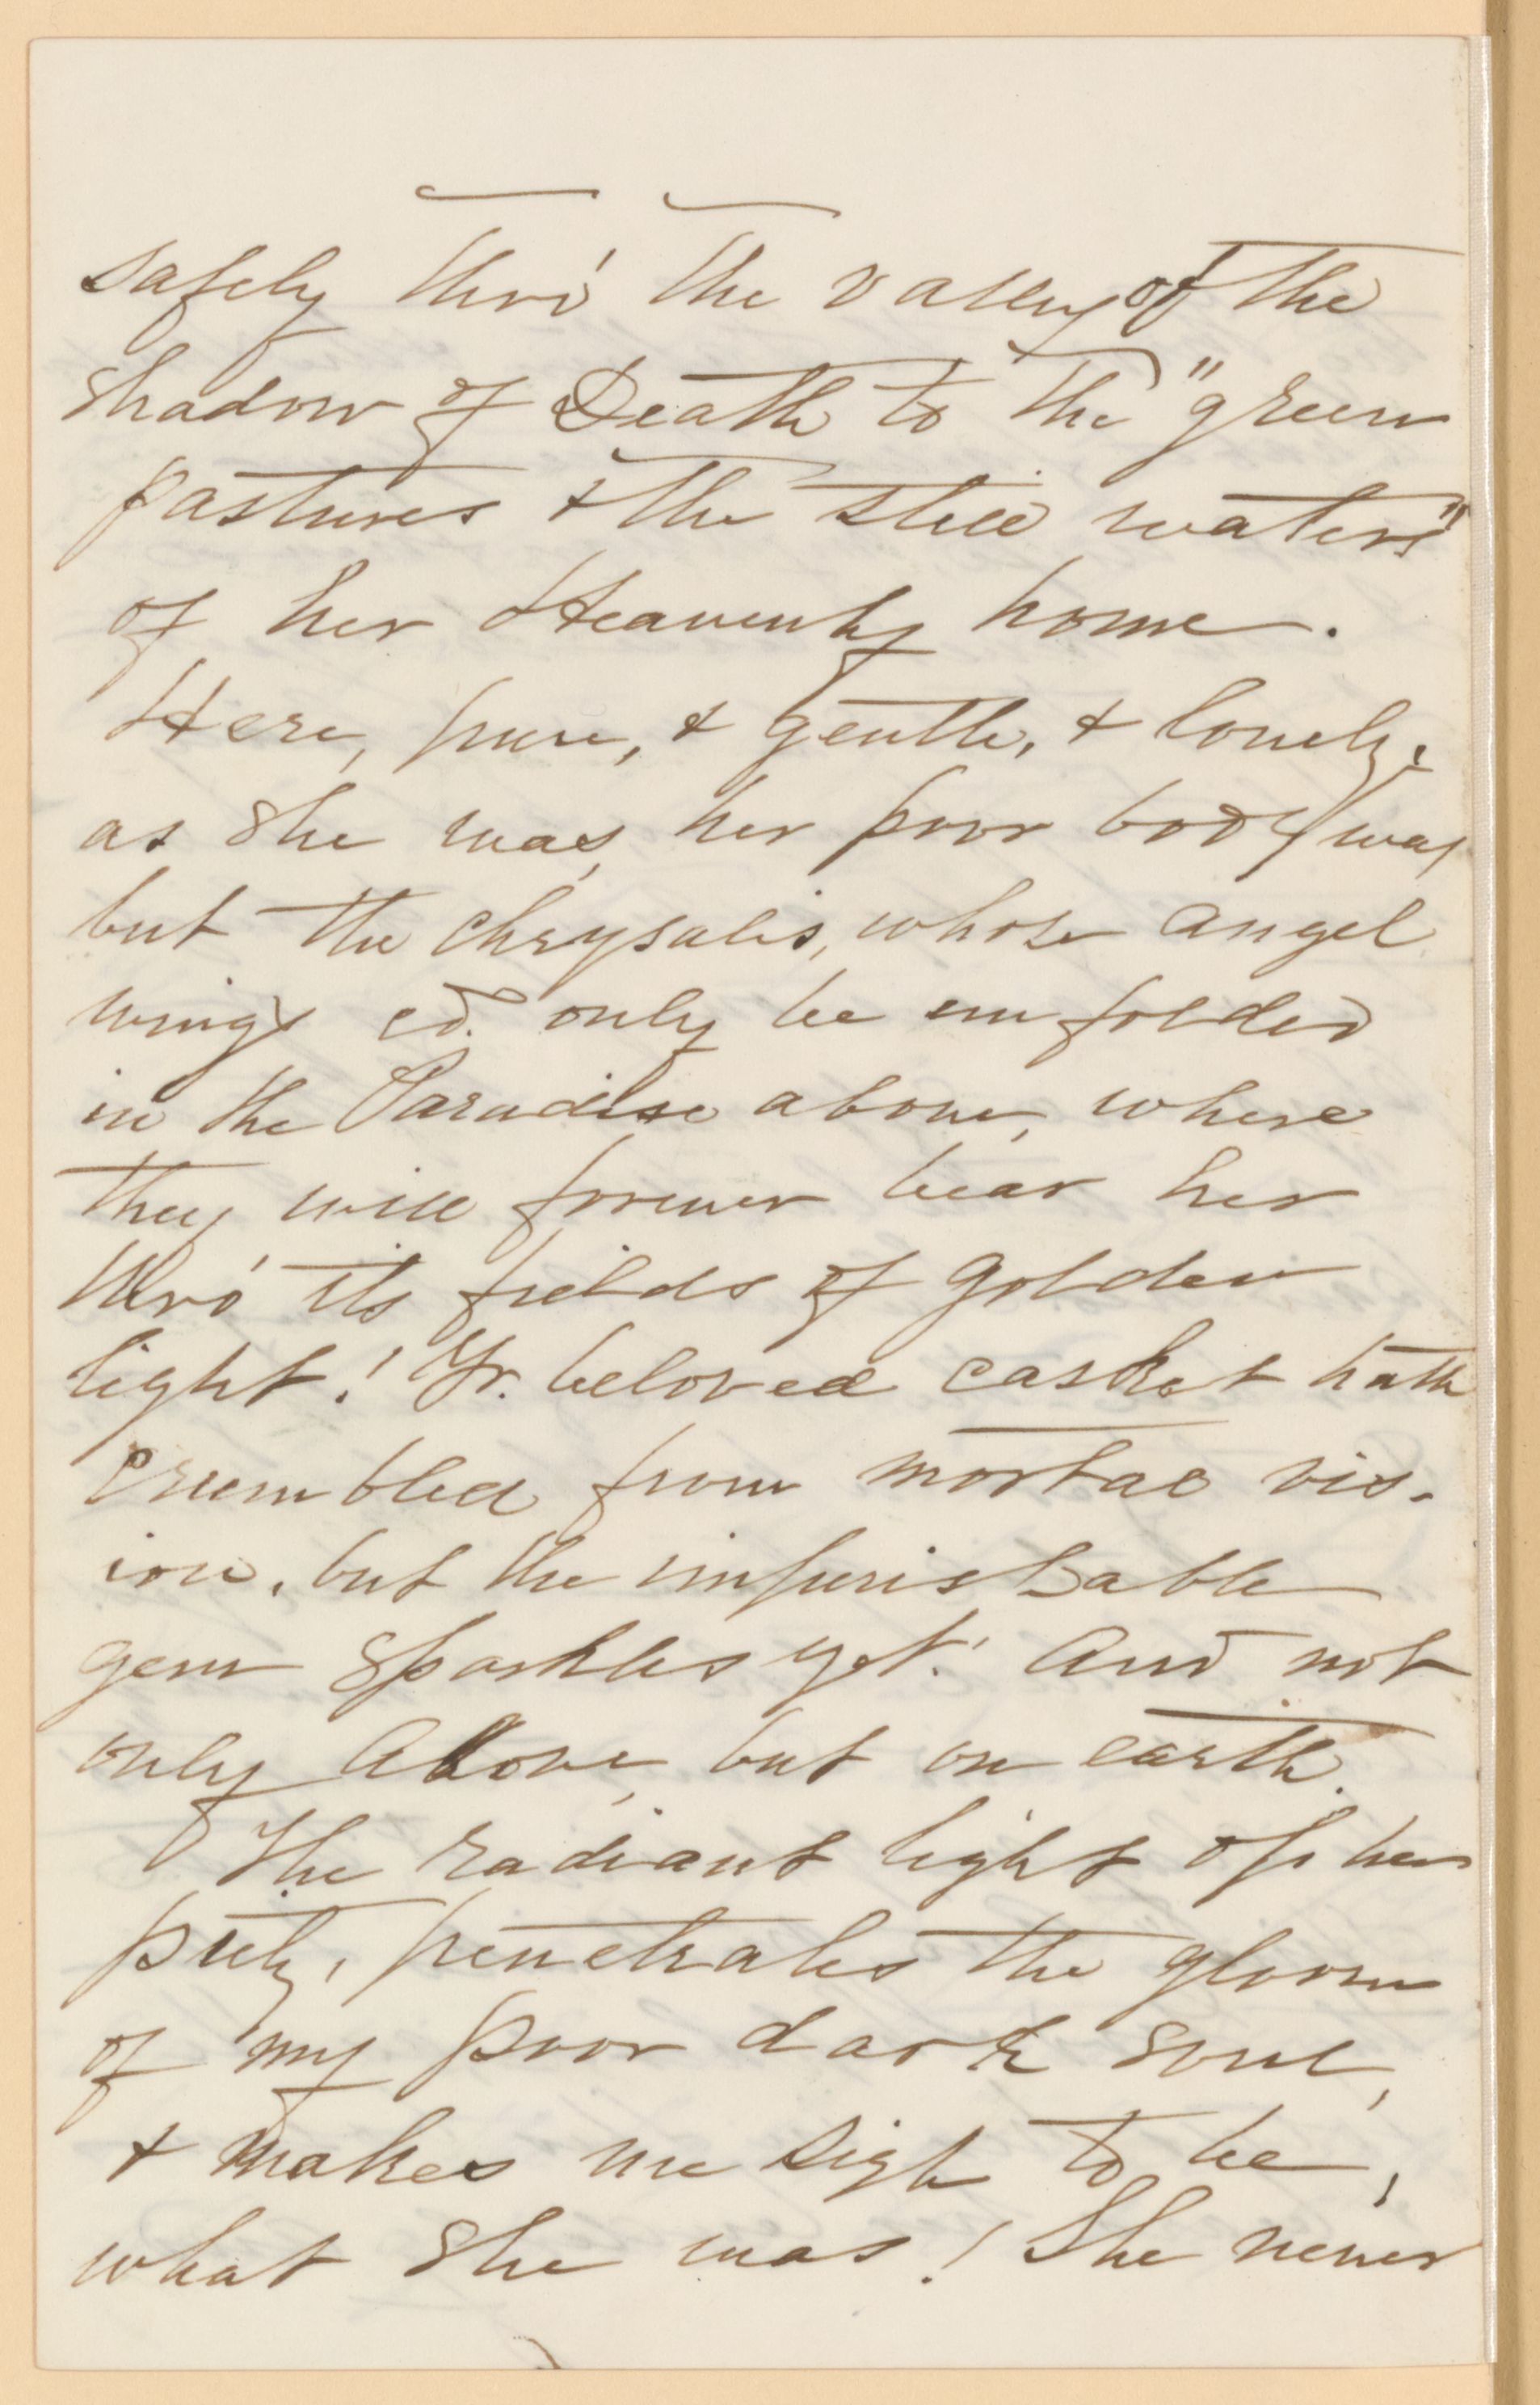 safely thro' the valley of the
shadow of Death to the "green
pastures & the still waters"
of her Heavenly home.
Here, pure, & gentle, & lovely,
as she was, her poor body was
but the chrysalis, whose angel
wings cd. only be unfolded
in the Paradise above, where
they will forever bear her
thro' its fields of golden
light! Yr. beloved casket hath
crumbled from mortal vis-
ion, but the imperishable
gem sparkles yet! And not
only above, but on earth.
The radiant light of her
piety, penetrates the gloom
of my poor dark soul,
& makes me sigh to be,
what she was! She never